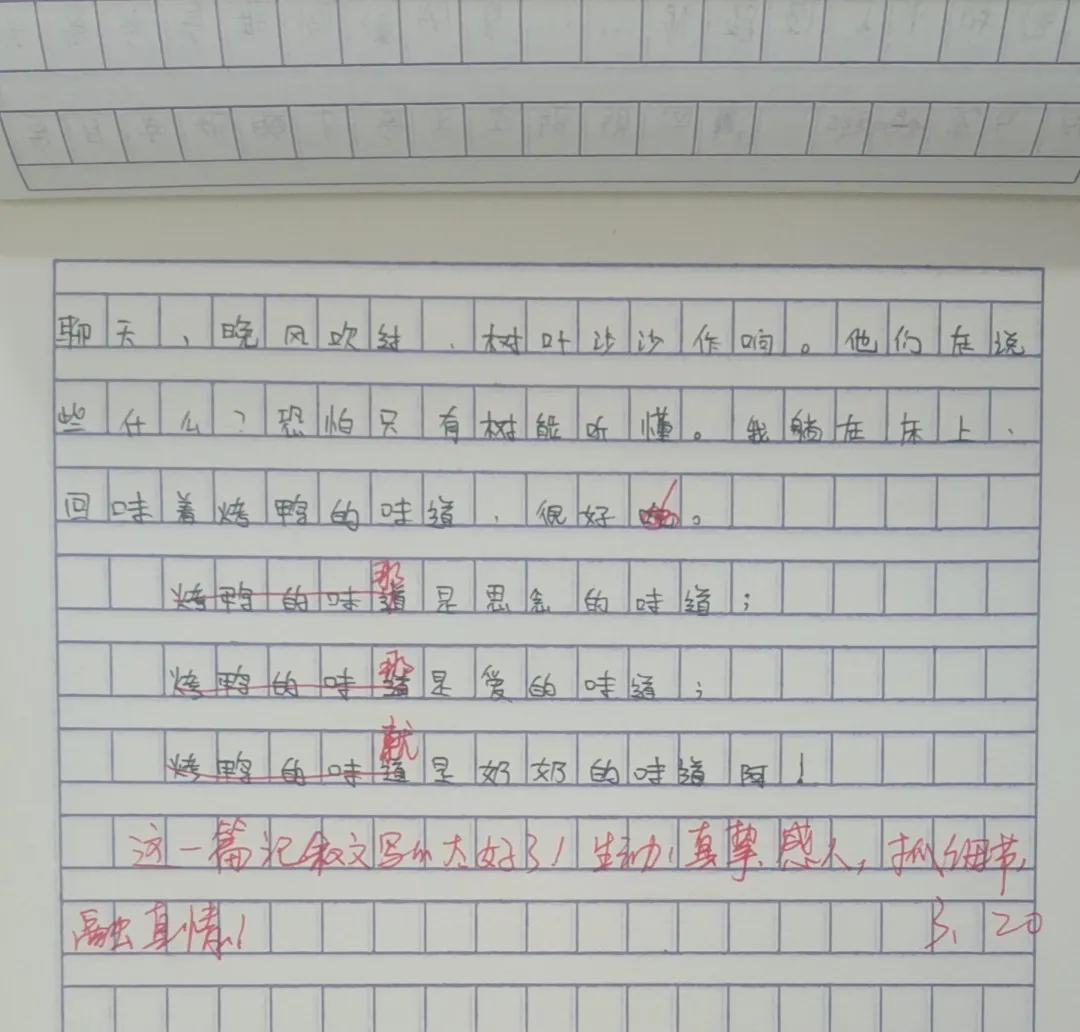 聊天，晚风吹，树叶沙沙作响。他们在说
些什么？恐怕只有树能听懂。我躺在床上，
回味着烤鸭的味道，很好。
那
烤鸭的味道是思念的味道；
那
烤鸭的味道是爱的味道；
就
烤鸭的味道是奶奶的味道啊！
这一篇记叙文写的太好了！生动，真挚感人，抓细节，
融真情！ 3、20